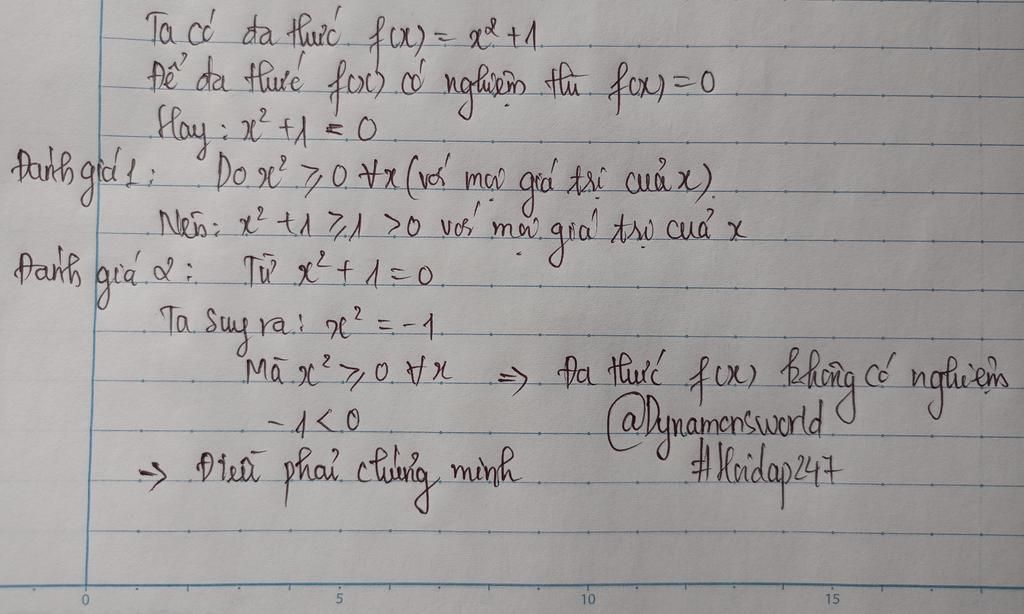 Ta có đa thức f(x) = x² + 1
Để đa thức f(x) có nghiệm thì f(x) = 0
Hay: x² + 1 = 0
Đánh giá 1: Do x² ⩾ 0 ∀x (với mọi giá trị của x)
Nên: x² + 1 ⩾ 1 > 0 với mọi giá trị của x
Đánh giá 2: Từ x² + 1 = 0
Ta suy ra: x² = -1
Mà x² ⩾ 0 ∀x => Đa thức f(x) không có nghiệm
-1 < 0 @Dynamonsworld
=> Điều phải chứng minh #Hoidap247
0 5 10 15